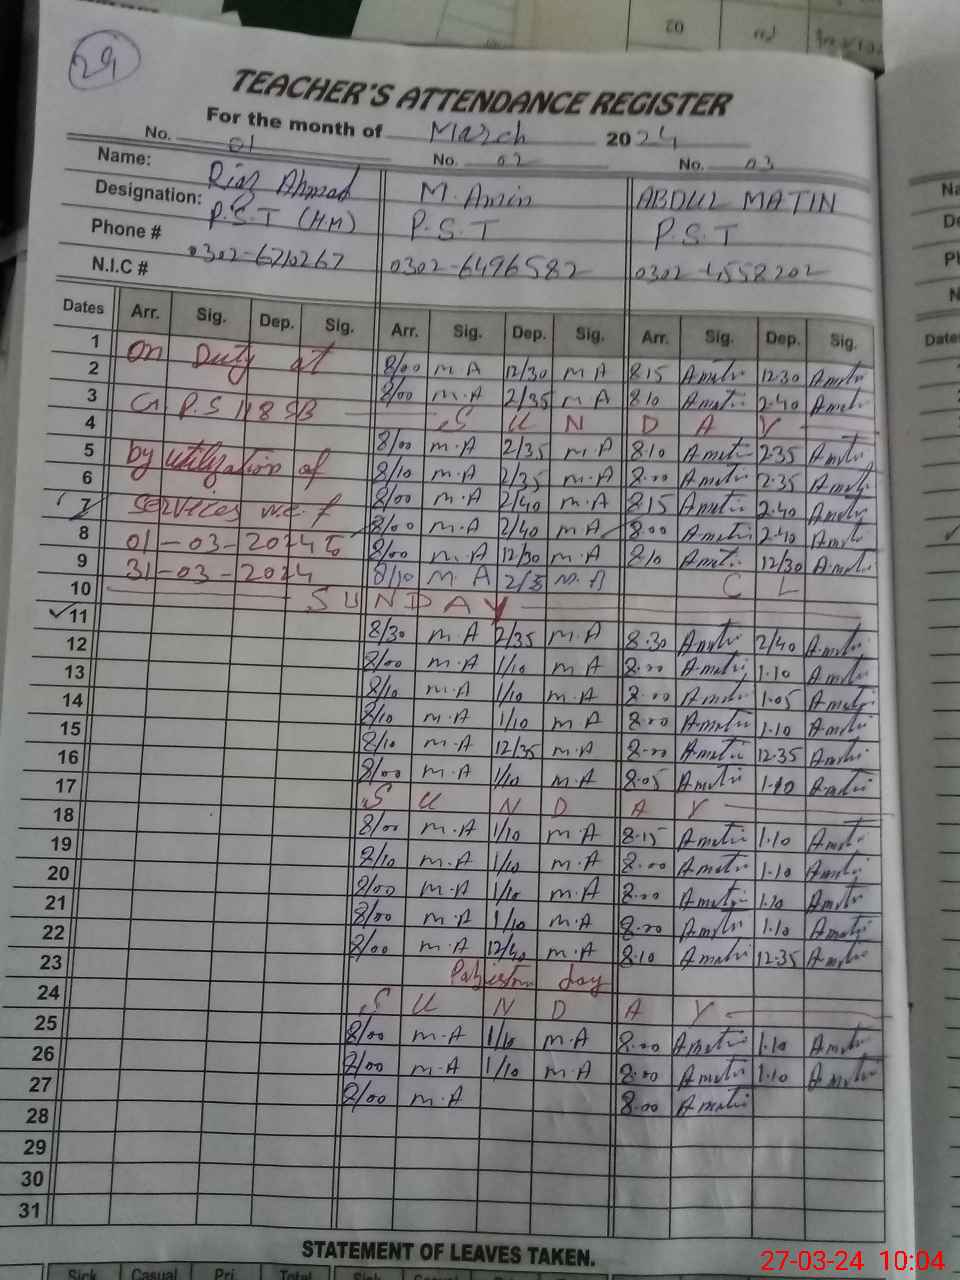 29
TEACHER'S ATTENDANCE REGISTER
For the month of March 2024
No. 01 No. 02 No. 03
Name: Riaz Ahmad M. Amin ABDUL MATIN
Designation: P.S.T (H.M) P.S.T P.S.T
Phone # 0302-6710267 0302-6496582 0302-4558202
N.I.C #
Dates Arr. Sig. Dep. Sig. Arr. Sig. Dep. Sig. Arr. Sig. Dep. Sig.
1 On Duty at 8/00 M.A 12/30 M.A 8.15 Amatin 12.30 Amatin
2 8/00 M.A 2/35 M.A 8.10 Amatin 2.40 Amatin
3 G P.S 118 SB S U N D A Y
4 8/00 M.A 2/35 M.A 8.10 Amatin 2.35 Amatin
5 by utilization of 8/10 M.A 2/35 M.A 8.00 Amatin 2.35 Amatin
6 8/00 M.A 2/40 M.A 8.15 Amatin 2.40 Amatin
7 services w.e.f 8/00 M.A 2/40 M.A 8.00 Amatin 2.40 Amatin
8 01-03-2024 to 8/00 M.A 12/30 M.A 8.10 Amatin 12/30 Amatin
9 31-03-2024 8/10 M.A 2/35 M.A C L
10 S U N D A Y
11 8/30 M.A 2/35 M.A 8.30 Amatin 2/40 Amatin
12 8/00 M.A 1/10 M.A 8.00 Amatin 1.10 Amatin
13 8/10 M.A 1/10 M.A 8.00 Amatin 1.05 Amatin
14 8/10 M.A 1/10 M.A 8.00 Amatin 1.10 Amatin
15 8/10 M.A 12/35 M.A 8.00 Amatin 12.35 Amatin
16 8/00 M.A 1/10 M.A 8.05 Amatin 1.10 Amatin
17 S U N D A Y
18 8/00 M.A 1/10 M.A 8.15 Amatin 1.10 Amatin
19 8/10 M.A 1/10 M.A 8.00 Amatin 1.10 Amatin
20 8/00 M.A 1/10 M.A 8.00 Amatin 1.10 Amatin
21 8/00 M.A 1/10 M.A 8.00 Amatin 1.10 Amatin
22 8/00 M.A 12/40 M.A 8.10 Amatin 12.35 Amatin
23 Pakistan day
24 S U N D A Y
25 8/00 M.A 1/10 M.A 8.00 Amatin 1.10 Amatin
26 8/00 M.A 1/10 M.A 8.00 Amatin 1.10 Amatin
27 8/00 M.A 8.00 Amatin
28
29
30
31
STATEMENT OF LEAVES TAKEN.
Sick Casual Pri Total Sick Casual Pri
27-03-24 10:04